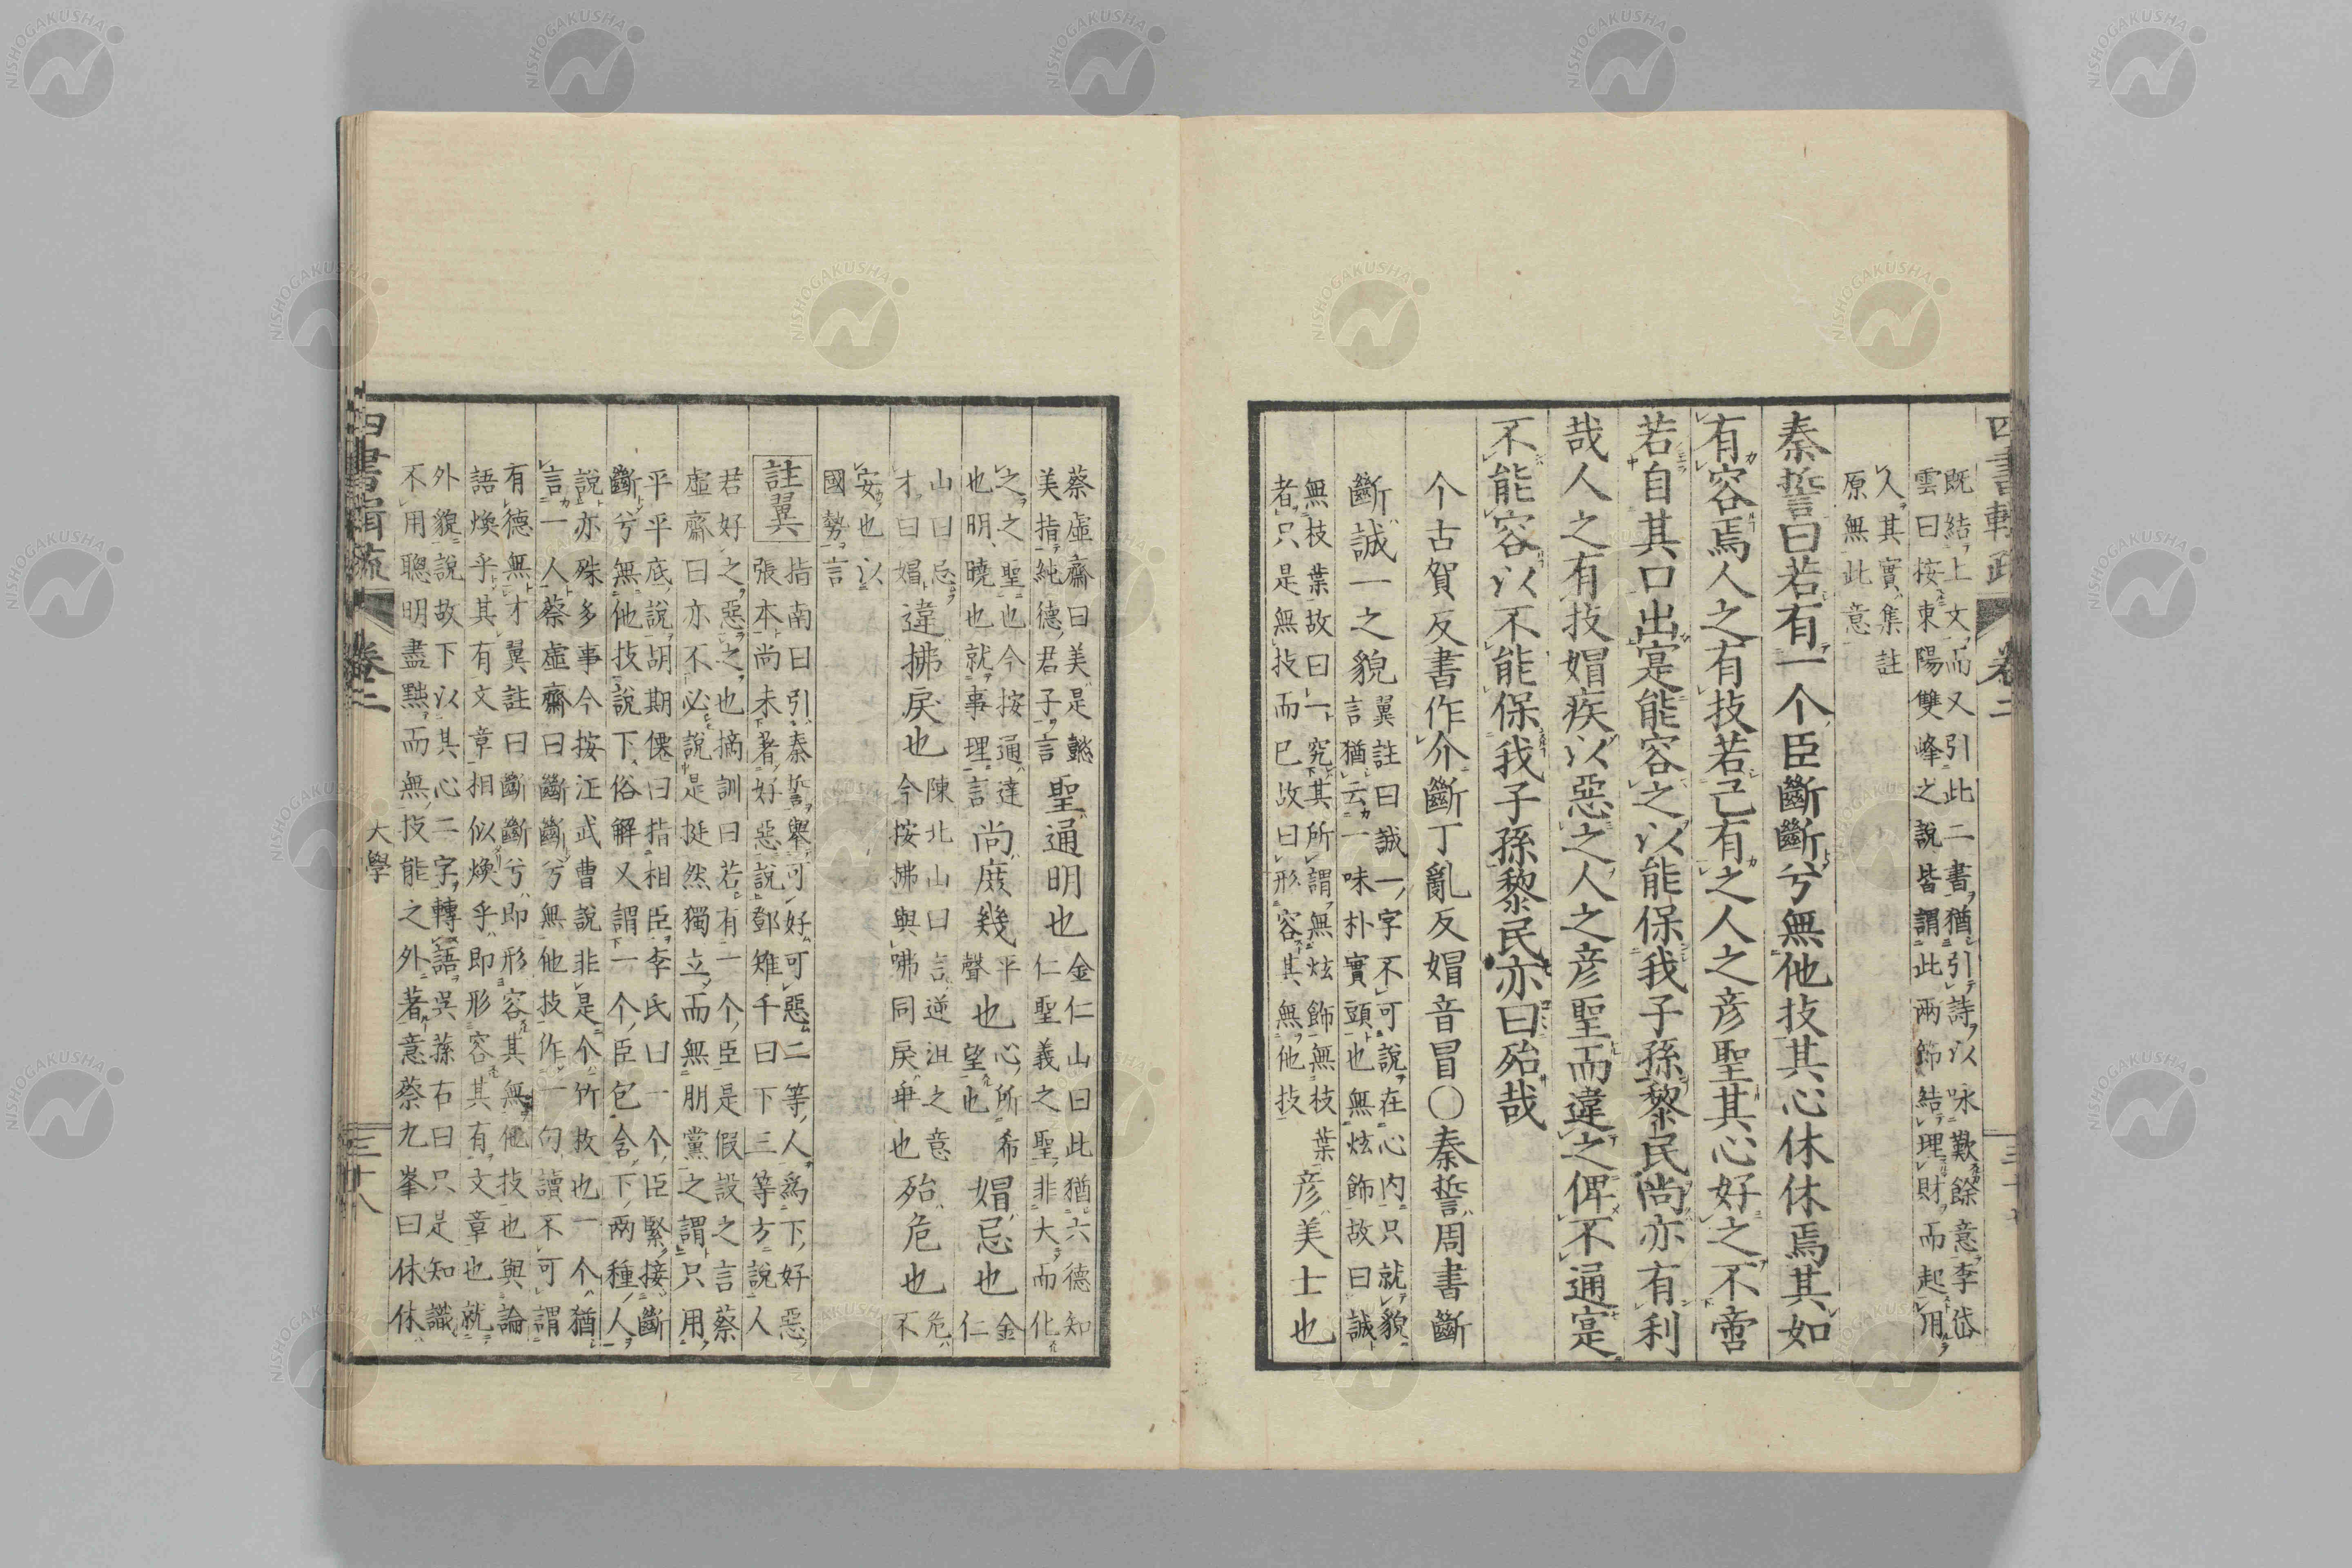 既結上文而又引此二書猶引詩以咏歎餘意李岱
雲曰按東陽雙峰之說皆謂此兩節結理財而起用
人其實集註
原無此意
秦誓曰若有一个臣斷斷兮無他技其心休休焉其如
有容焉人之有技若己有之人之彥聖其心好之不啻
若自其口出寔能容之以能保我子孫黎民尚亦有利
哉人之有技媢疾以惡之人之彥聖而違之俾不通寔
不能容以不能保我子孫黎民亦曰殆哉
个古賀反書作介斷丁亂反媢音冒○秦誓周書斷
斷誠一之貌
翼註曰誠一字不可說在心內只就貌
言猶云一味朴實頭也無炫飾故曰誠
無枝葉故曰一究其所謂無炫飾無枝葉
者只是無技而已故曰形容其無他技
彥美士也
蔡虛齋曰美是懿
美指純德君子言
聖通明也
金仁山曰此猶六德知
仁聖義之聖非大而化
之之聖也今按通達
也明曉也就事理言
尚庶幾也
平聲
心所希
望也
媢忌也
金仁
山曰忌
才曰媢
違拂戾也
陳北山曰言逆沮之意
今按拂與咈同戾乖也
殆危也
危不
安也以
國勢言
註翼
指南曰引秦誓舉可好可惡二等人爲下好惡
張本尚未著好惡說鄧雉千曰下三等方說人
君好之惡之也摘訓曰若有一个臣是假設之言蔡
虛齋曰亦不必說是挺然獨立而無朋黨之謂只用
平平底說胡期僊曰指相臣李氏曰一个臣緊接斷
斷兮無他技說下俗解又謂一个臣包含下兩種人
說亦殊多事今按汪武曹說非是个竹枚也一个猶
言一人蔡虛齋曰斷斷兮無他技作一句讀不可謂
有德無才翼註曰斷斷兮即形容其無他技也與論
語煥乎其有文章相似煥乎即形容其有文章也就
外貌說故下以其心二字轉語吳蓀右曰只是知識
不用聰明盡黜而無技能之外著意蔡九峯曰休休
四書輯疏
卷二
大學
三十八